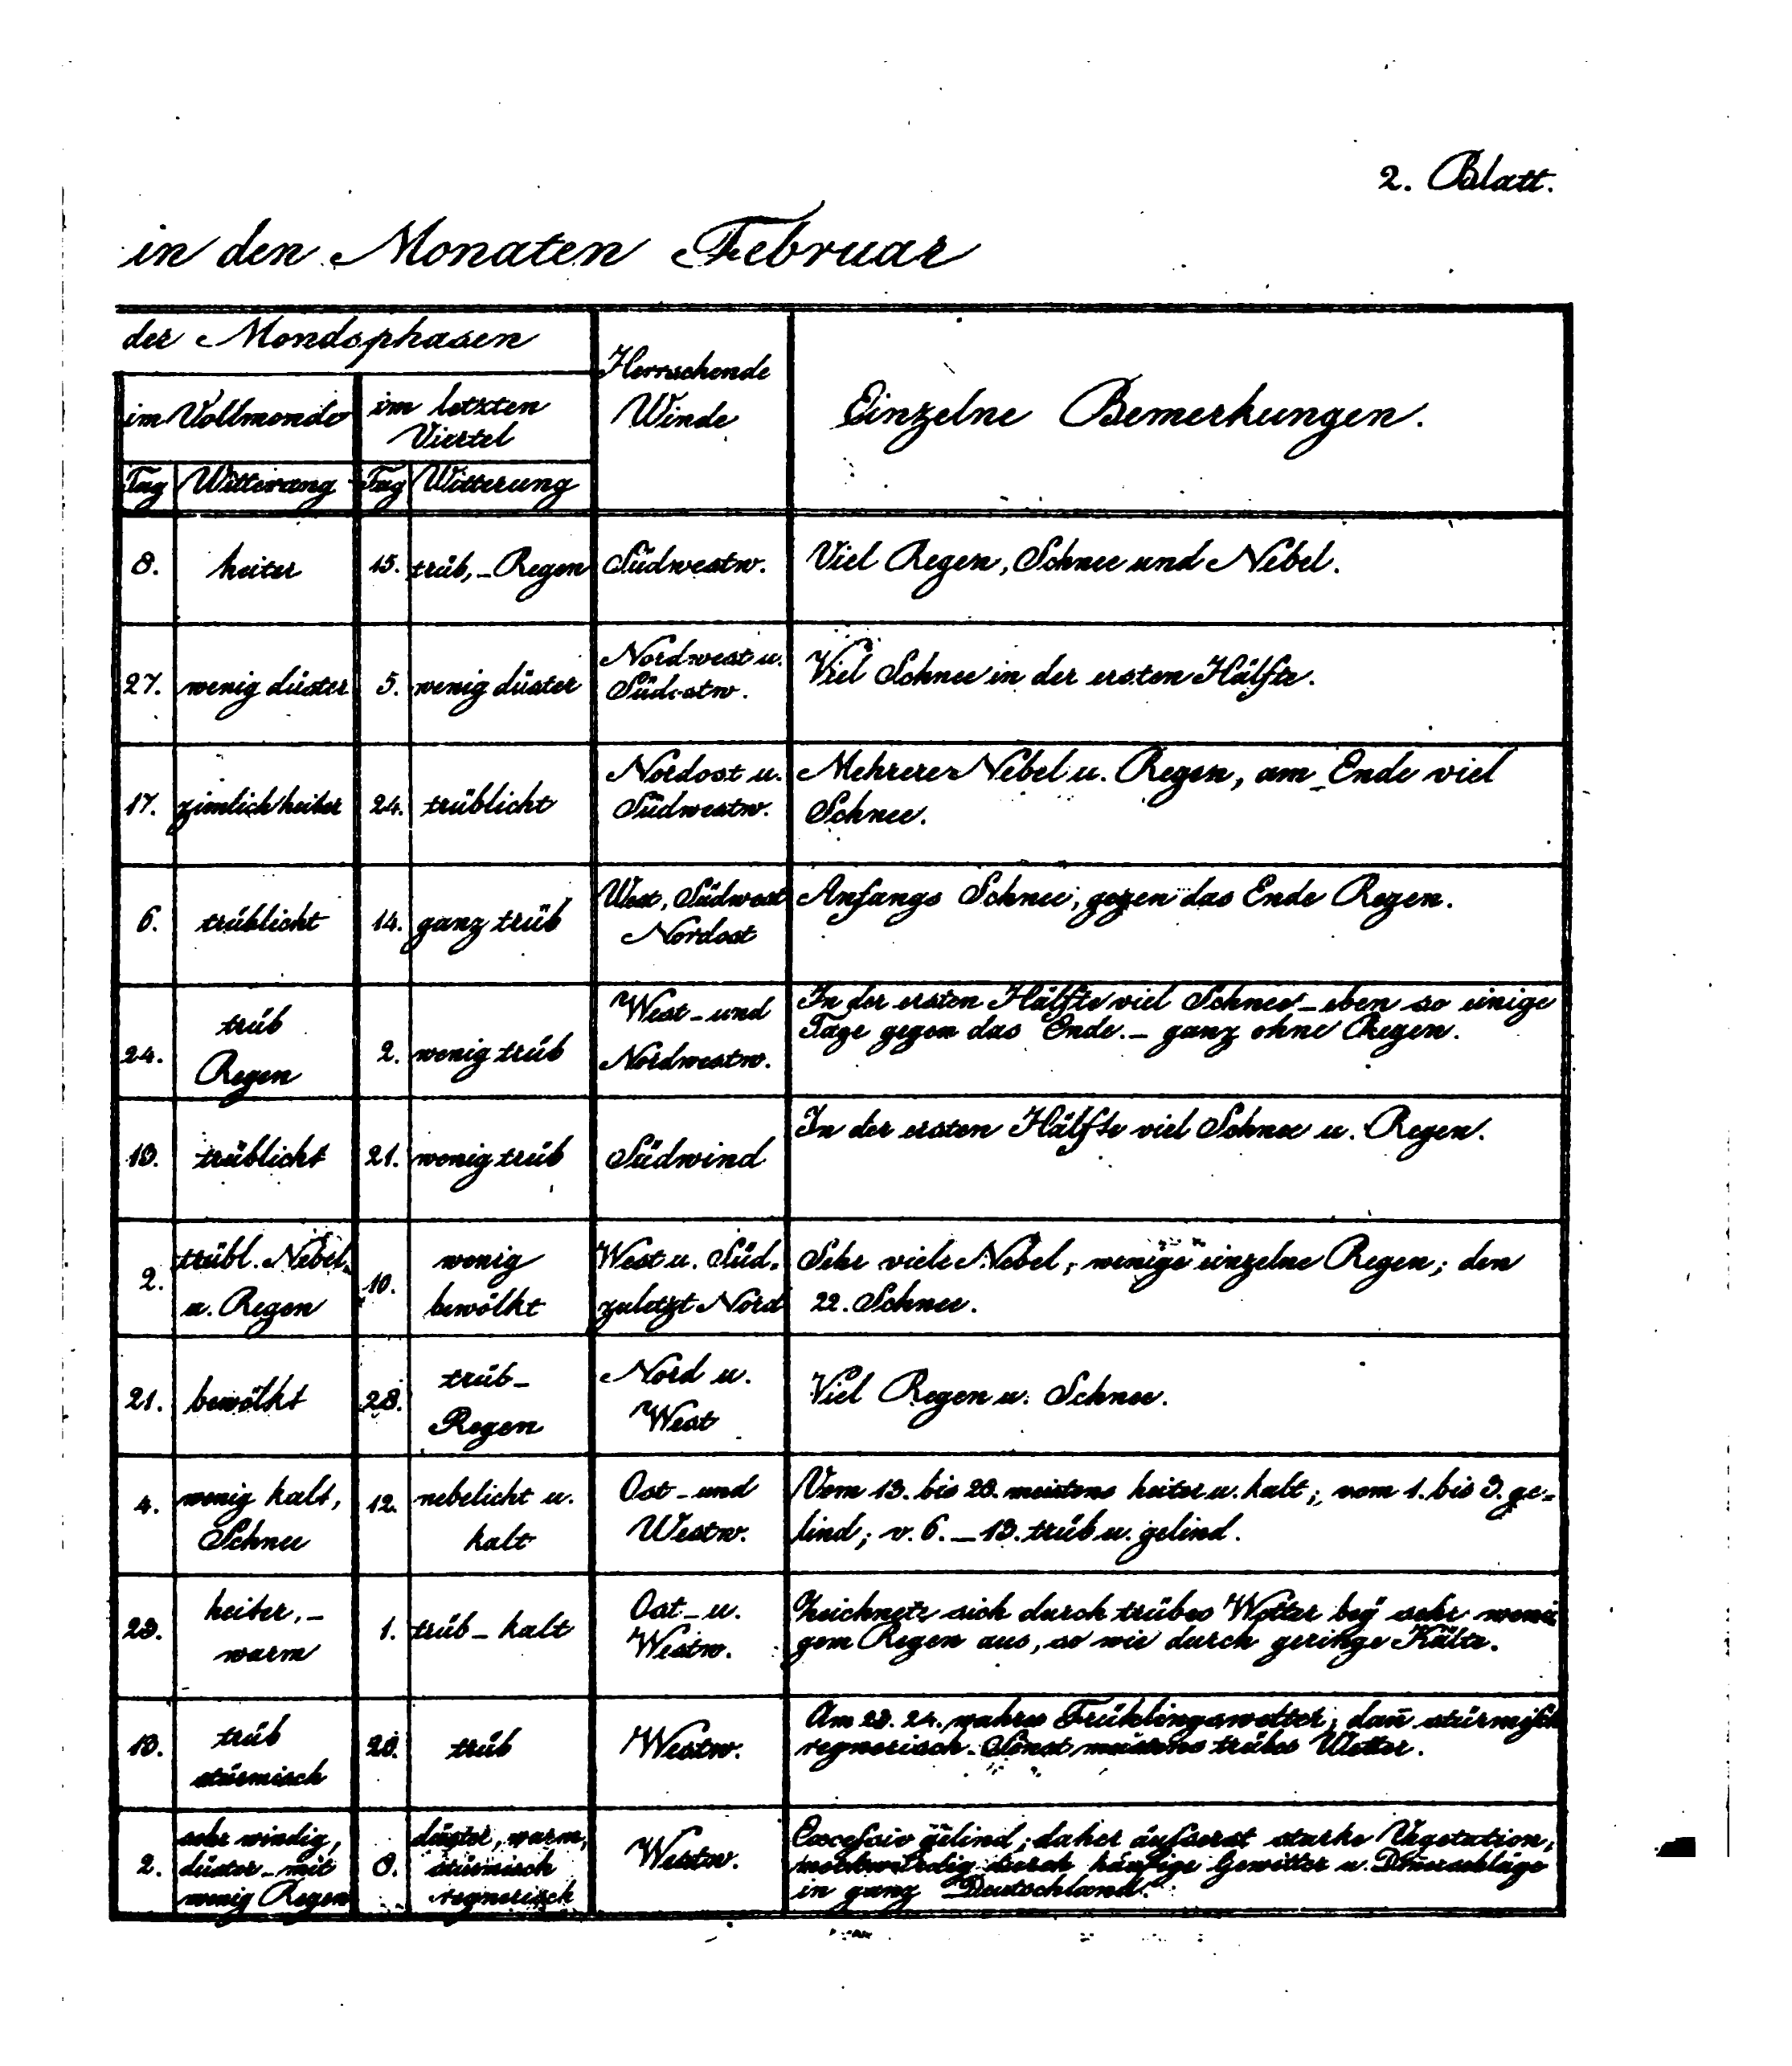 2. Blatt.
in den Monaten Februar
der Mondsphasen
Herrschende
Winde
Einzelne Bemerkungen.
im Vollmonde
im letzten
Viertel
Tag Witterung Tag Witterung
8. heiter 15. trüb, - Regen Südwestw. Viel Regen, Schnee und Nebel.
27. wenig düster 5. wenig düster Nordwest u.
Südostw.
Viel Schnee in der ersten Hälfte.
17. zimlich heiter 24. trüblicht Nordost u.
Südwestw.
Mehrerer Nebel u. Regen, am Ende viel
Schnee.
6. trüblicht 14. ganz trüb West, Südwest
Nordost
Anfangs Schnee, gegen das Ende Regen.
24. trüb
Regen
2. wenig trüb West - und
Nordwestw.
In der ersten Hälfte viel Schnee - eben so einige
Tage gegen das Ende. - ganz ohne Regen.
13. trüblicht 21. wenig trüb Südwind In der ersten Hälfte viel Schnee u. Regen.
2. trübl. Nebel
u. Regen
10. wenig
bewölkt
West u. Süd,
zuletzt Nord
Sehr viele Nebel, wenige einzelne Regen; den
22. Schnee.
21. bewölkt 28. trüb -
Regen
Nord u.
West
Viel Regen u. Schnee.
4. wenig kalt,
Schnee
12. nebelicht u.
kalt
Ost - und
Westw.
Vom 13. bis 23. meistens heiter u. kalt; vom 1. bis 3. ge-
lind; v. 6. - 13. trüb u. gelind.
23. heiter, -
warm
1. trüb - kalt Ost - u.
Westw.
Zeichnete sich durch trübes Wetter bey sehr weni
gem Regen aus, so wie durch geringe Kälte.
13. trüb
stürmisch
20. trüb Westw. Am 23. 24. wahres Frühlingswetter; dan̄ stürmisch
regnerisch. Sonst meistens trübes Wetter.
2. sehr windig,
düster - mit
wenig Regen
8. düster, warm,
stürmisch
regnerisch
Westw. Excessiv gelind; daher äusserst starke Vegetation,
merkwürdig durch häufige Gewitter u. Don̄erschläge
in ganz Deutschland.